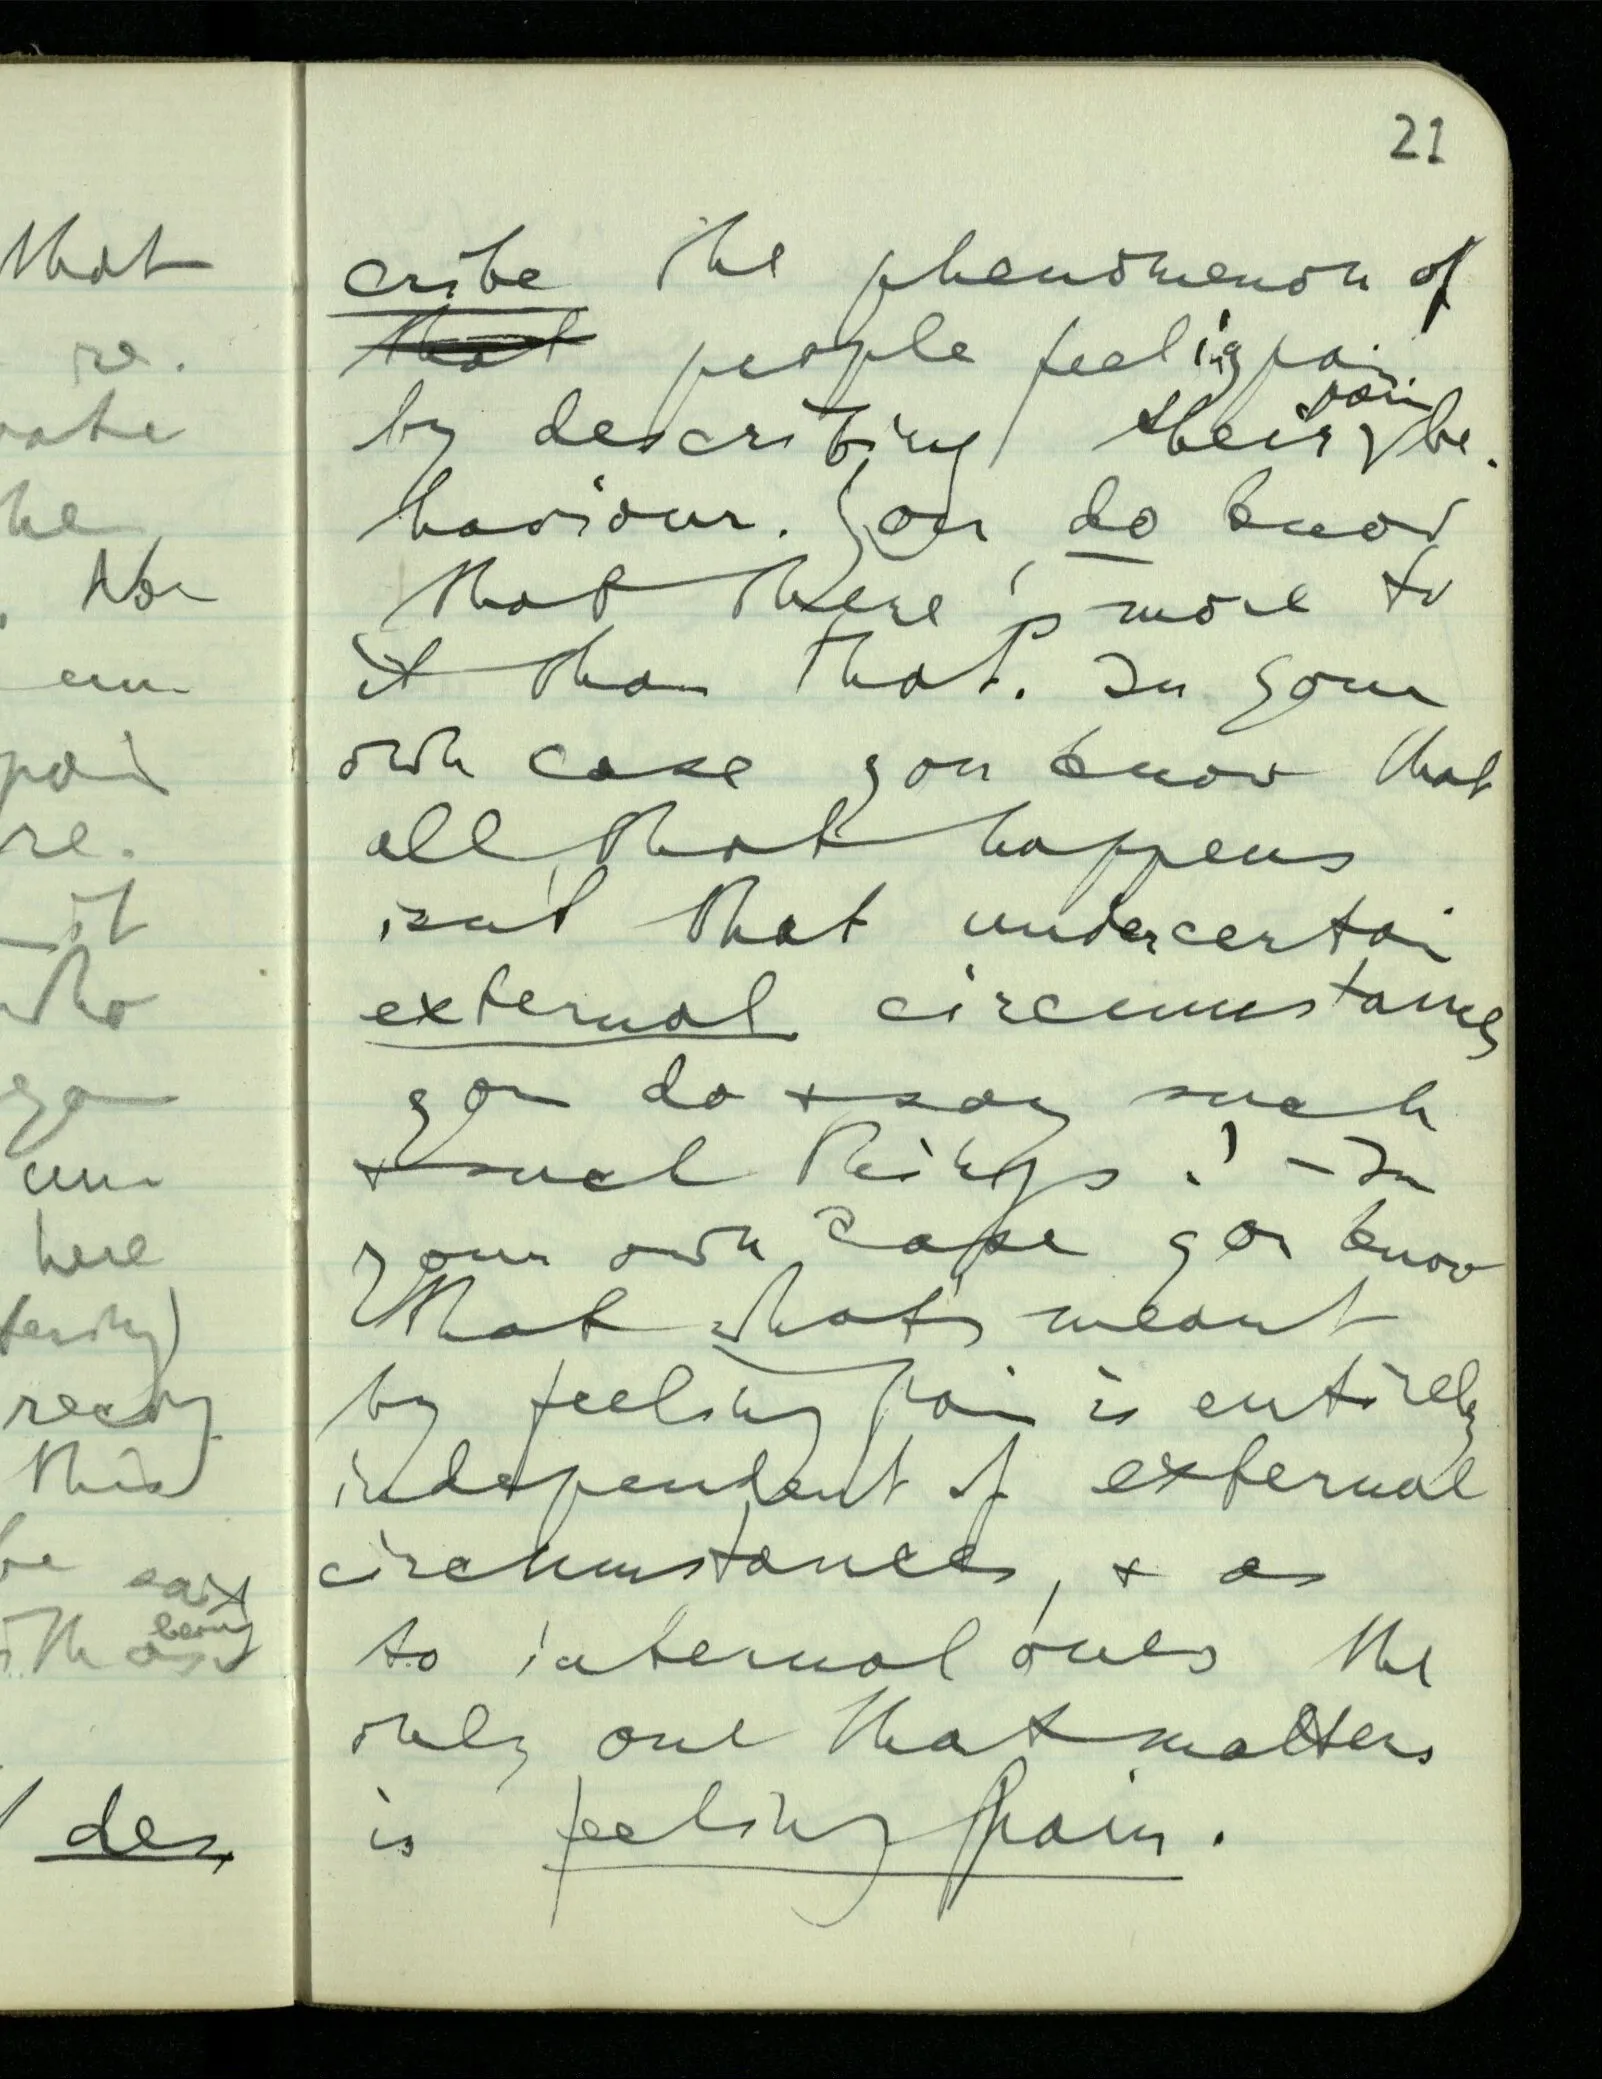 that
re.
he
No
pain
re.
it
who
you
here
this
be said
being
des
21
cribe the phenomenon of
that people feeling pain
pain
by describing their be-
haviour. You do know
that there's more to
it than that. In your
own case you know that
all that happens
isn't that under certain
external circumstances
you do + say such
+ such things! – In
your own case you know
that what's meant
by feeling pain is entirely
independent of external
circumstances, + as
to internal ones the
only one that matters
is feeling pain.